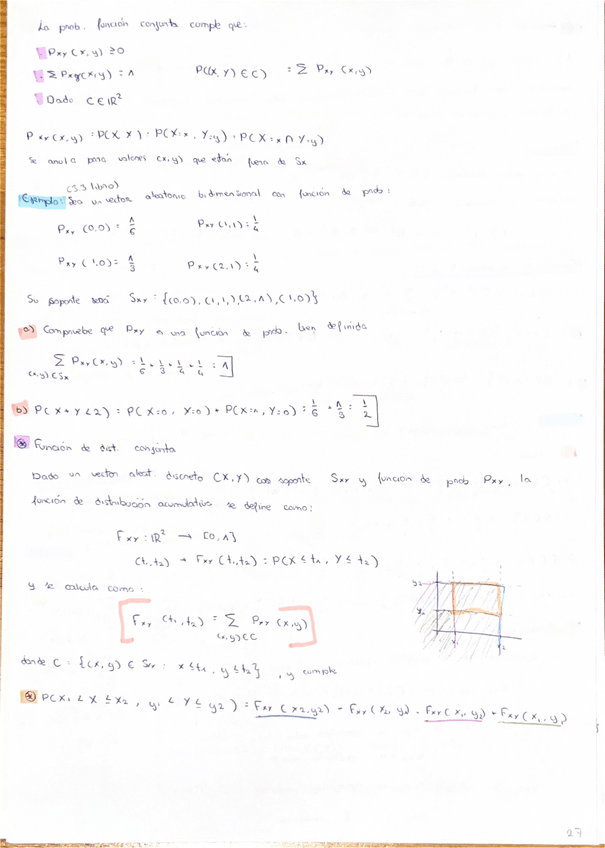 La prob. función conjunta cumple que:
- Pxy (x,y) ≥0
. Σ Pxy(x,y) = 1    P((X,Y) ∈ C) = Σ Pxy (x,y)
' Dado C ∈ IR²
P xy (x,y) = P(X,Y) = P(X=x, Y=y) = P(X=x ∩ Y=y)
se anula para valores (x,y) que están fuera de Sx
(3.3 libro)
Ejemplo: Sea un vector aleatorio bidimensional con función de prob:
Pxy (0,0) = 1/6    Pxy (1,1) = 1/4
Pxy (1,0) = 1/3    Pxy (2,1) = 1/4
Su soporte será Sxy = {(0,0), (1,1), (2,1), (1,0)}
a) Compruebe que Pxy es una función de prob. bien definida
Σ Pxy (x,y) = 1/6 + 1/3 + 1/4 + 1/4 = 1
(x,y) ∈ Sx
b) P(X+Y<2) = P(X=0, Y=0) + P(X=1, Y=0) = 1/6 + 1/3 = 1/2
Función de dist. conjunta
Dado un vector aleat. discreto (X,Y) con soporte Sxy y función de prob Pxy, la
función de distribución acumulativa se define como:
Fxy : IR² → [0,1]
(t1,t2) → Fxy (t1,t2) = P(X ≤ t1, Y ≤ t2)
y se calcula como:
Fxy (t1,t2) = Σ Pxy (x,y)
(x,y) ∈ C
y2
y1
x1 x2
donde C = {(x,y) ∈ Sxy : x≤t1, y≤t2}, y cumple
P(x1 < X ≤ x2, y1 < Y ≤ y2) = Fxy (x2,y2) - Fxy (x2,y1) - Fxy (x1,y2) + Fxy (x1,y1)
27